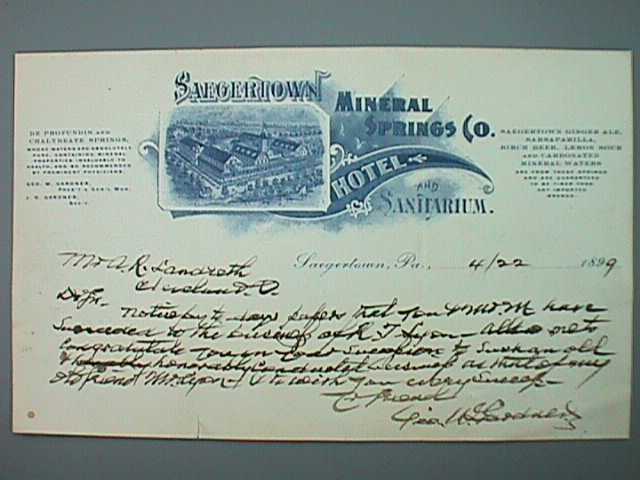 SAEGERTOWN
MINERAL
SPRINGS CO.
HOTEL
AND
SANITARIUM.
DE PROFUNDIS AND
CHALYBEATE SPRINGS,
WHOSE WATERS ARE ABSOLUTELY
PURE, CONTAINING MINERAL
PROPERTIES INVALUABLE TO
HEALTH, AND RECOMMENDED
BY PROMINENT PHYSICIANS.
GEO. W. GARDNER,
PRES'T & GEN'L MGR.
J. H. GARDNER,
SEC'Y.
SAEGERTOWN GINGER ALE,
SARSAPARILLA,
BIRCH BEER, LEMON SOUR
AND CARBONATED
MINERAL WATERS
ARE FROM THESE SPRINGS
AND ARE GUARANTEED
TO BE FINER THAN
ANY IMPORTED
Saegertown, Pa., 4/22 1899
Mr A. R. Landreth
Cleveland. O.
Notice by to days papers that you & Mr. M have
Succeeded to the business of R. T Lyon
Congratulate you in your Succession to Such an old
& honorably Conducted business as that of my
old friend Mr. Lyon I wish you every Success
Yr friend
Geo. W. Gardner